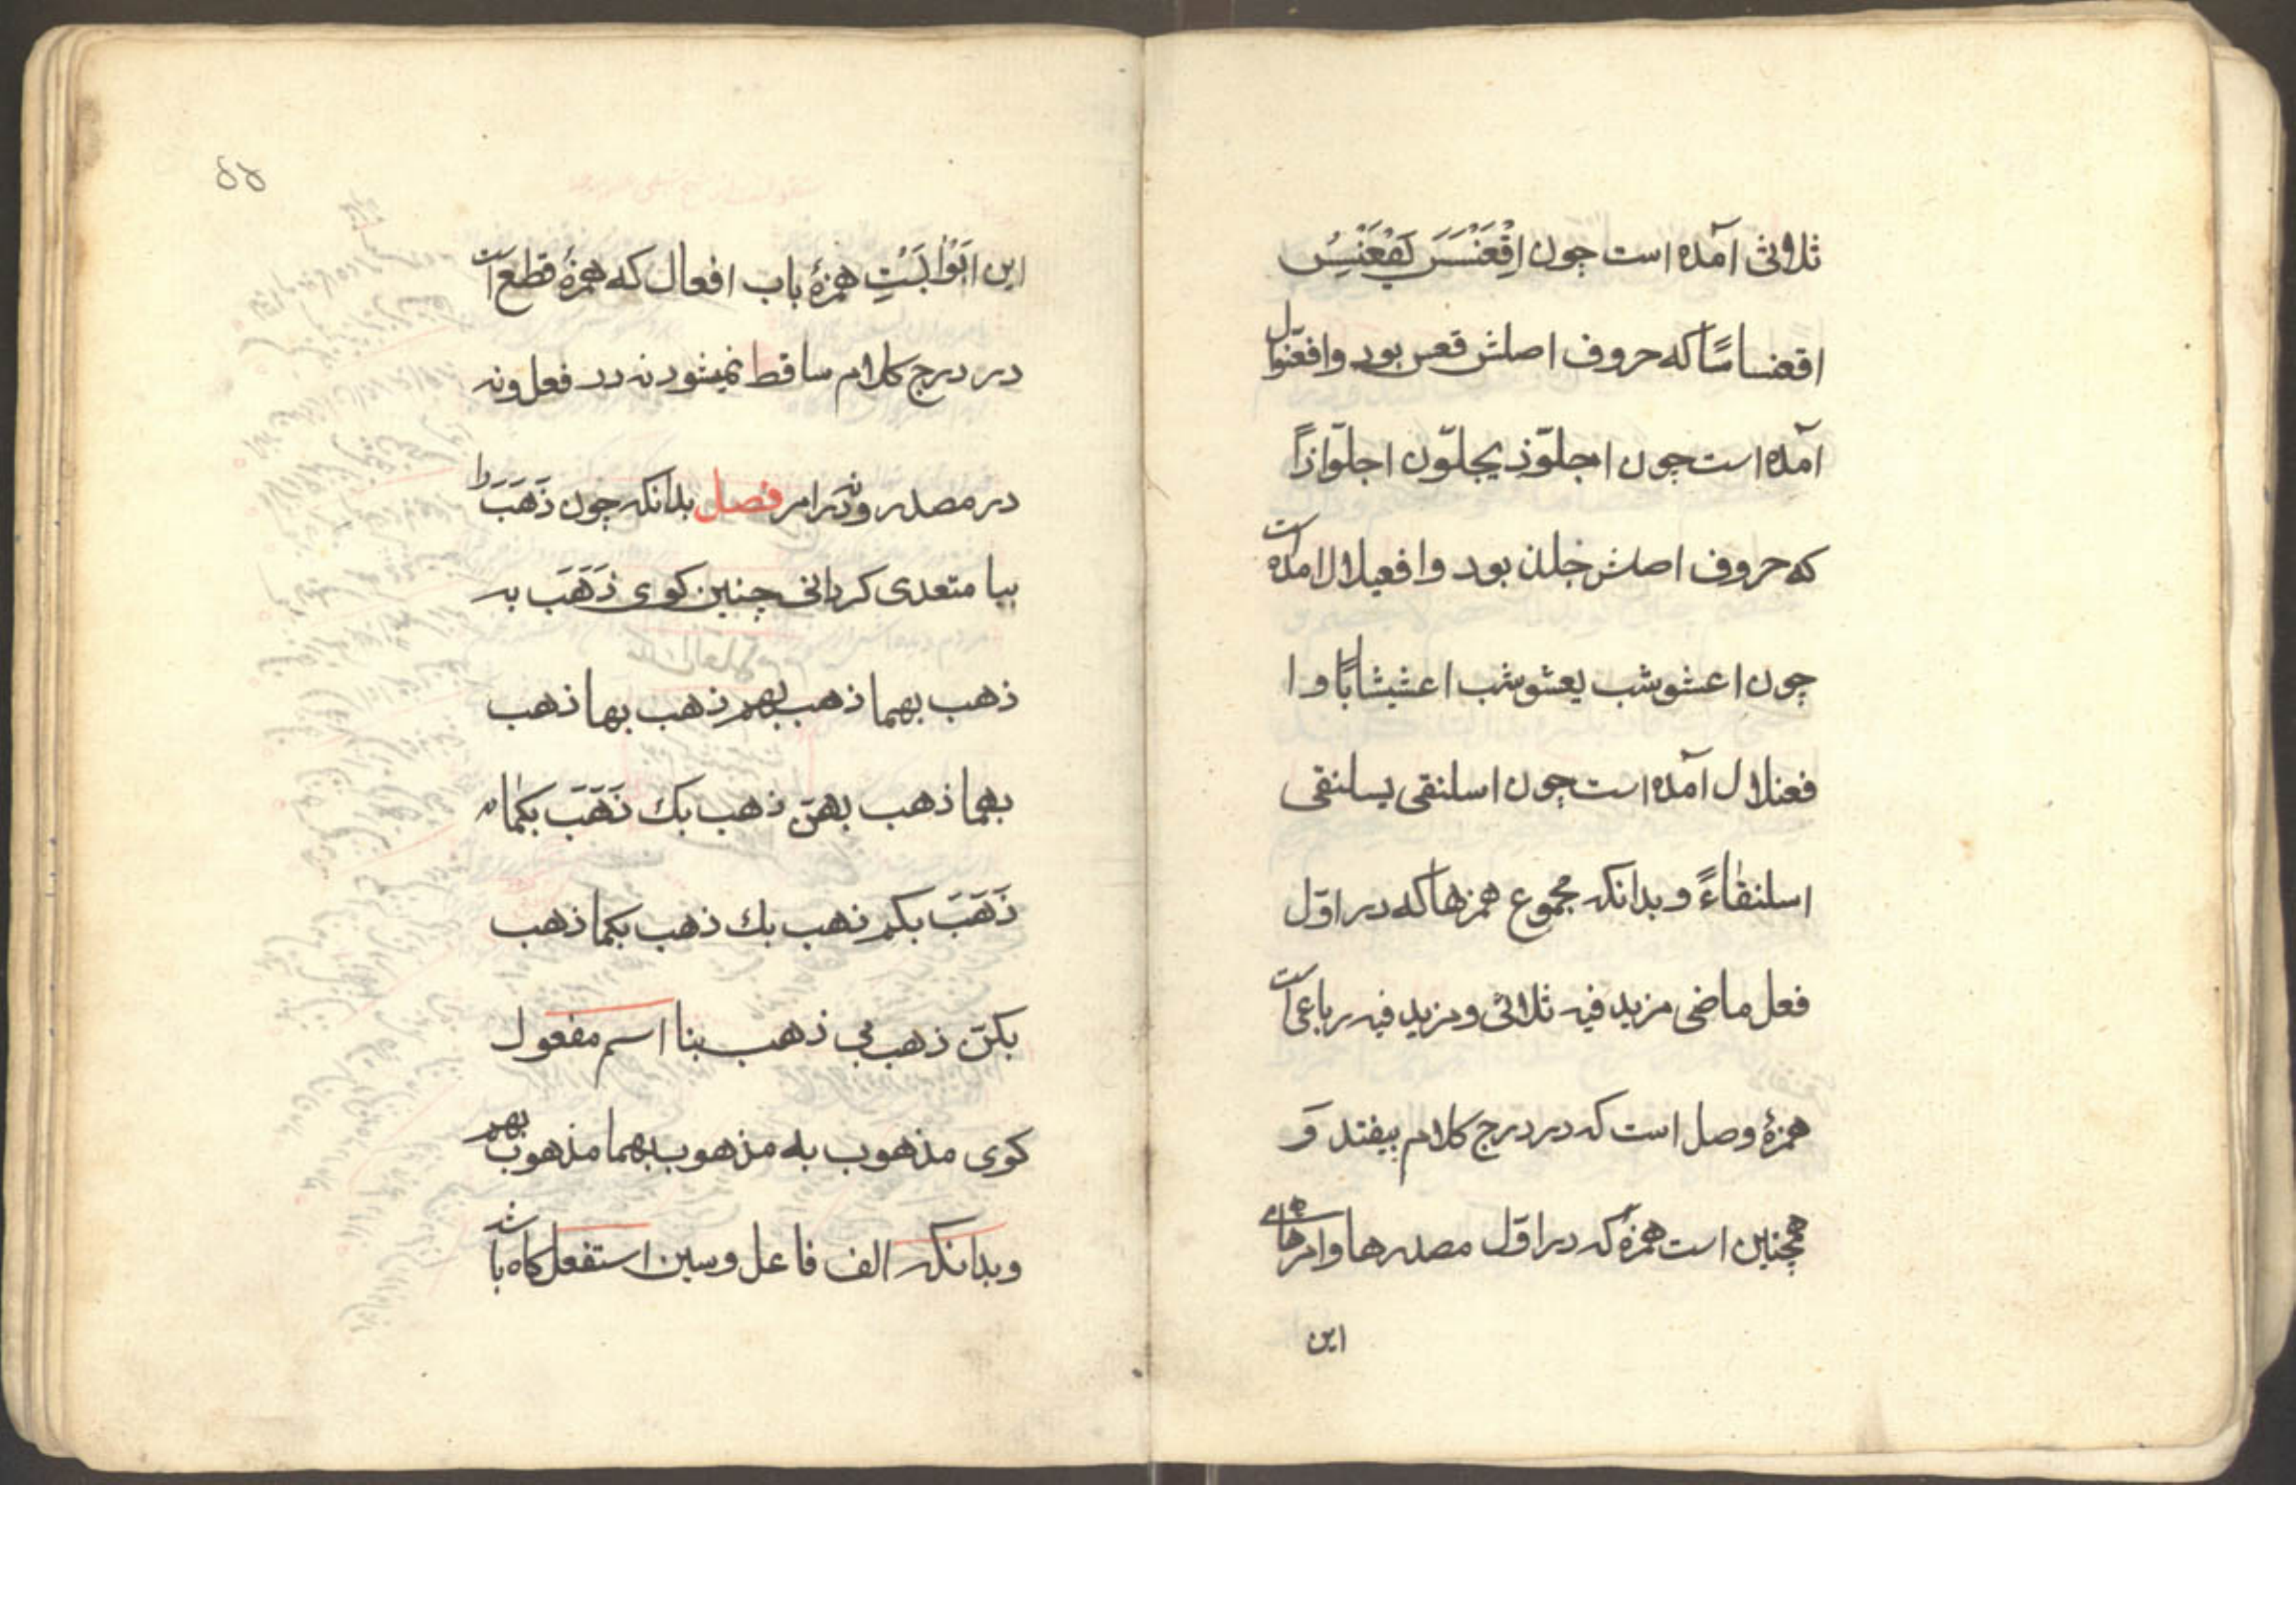 ثلاثی آمده است چون اِقْعَنْسَسَ یَقْعَنْسِسُ
اقعنساسًا که حروف اصلش قعس بود وافعوّال
آمده است چون اجلوّذ یجلوّن اجلوّاذاً
که حروف اصلش جلذ بود وافعیلال امده است
چون اعشوشب یعشوشب اعشیشابًا و ا
فعنلال آمده است چون اسلنقی یسلنقی
اسلنقاءً و بدانکه مجموع همزها که در اوّل
فعل ماضی مزید فیه ثلاثی ومزید فیه رباعی است
همزهٔ وصل است که در درج کلام بیفتد وَ
همچنین است همزهٔ که در اوّل مصدرها وامرهای
این
۵۵
این اَبْوابَسْتِ همزهٔ باب افعال که همزهٔ قطع است
در درج کلام ساقط نمیشود نه در فعل ونه
در مصدر ونه در امر فصل بدانکه چون ذَهَبَ را
ببا متعدی کردانی چنین کوی ذَهَبَ به
ذهب بهما ذهب بهم ذهب بها ذهب
بهما ذهب بهنّ ذهب بك ذَهَبَ بکما
ذَهَبَ بکم ذهب بك ذهب بکما ذهب
بکنّ ذهب بی ذهب بنا اسم مفعول
کوی مذهوب به مذهوب بهما مذهوب بهم
وبدانکه الف فاعل وسین استفعل کاه باشد